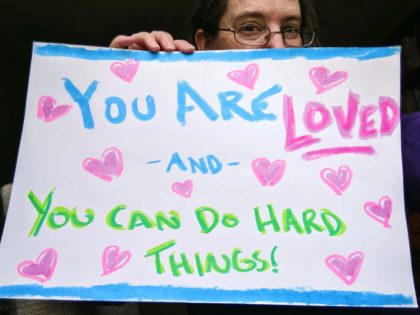 You Are Loved
- AND -
You Can Do Hard
Things!